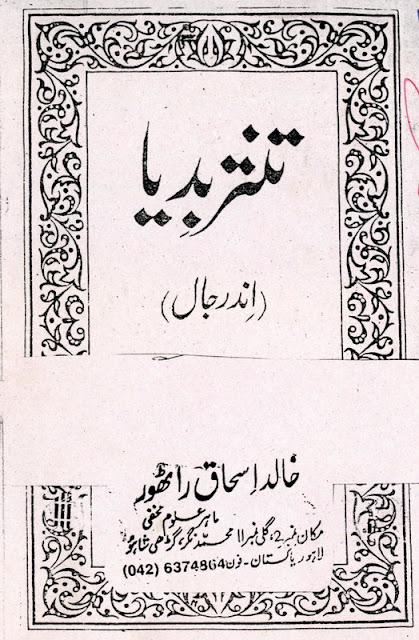 تنتر بدیا
(اِندر جال)
خالد اسحاق راٹھور
ماہر علوم مخفی
مکان نمبر 2، گلی نمبر 11 محمد نگر، گڑھی شاہو
لاہور پاکستان - فون 6374864 (042)